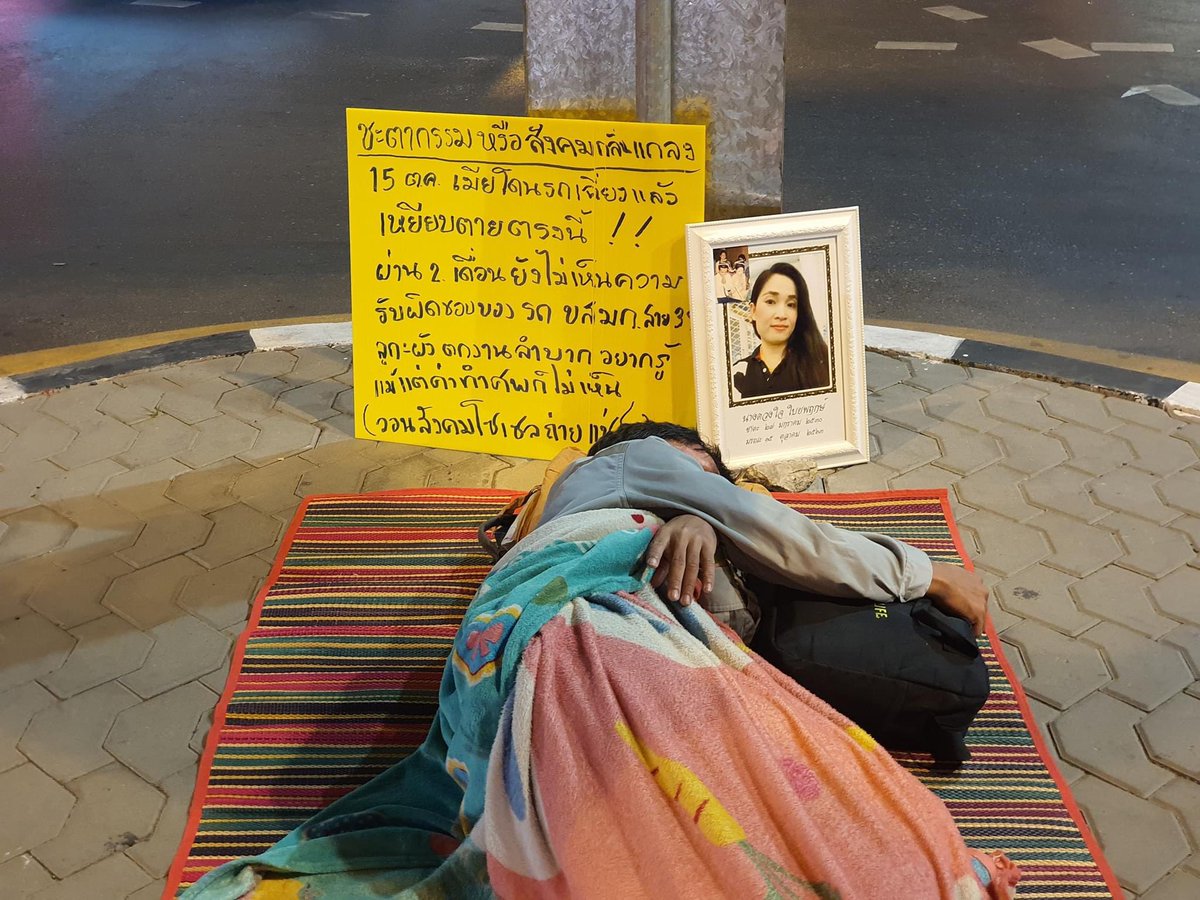 ชะตากรรม หรือ สังคมกลั่นแกลง
15 ตค. เมียโดนรถเฉี่ยวแล้ว
เหยียบตายตรงนี้ !!
ผ่าน 2 เดือน ยังไม่เห็นความ
รับผิดชอบของ รถ ขสมก. สาย
ลูกะผัว ตกงานลำบาก อยากรู้
แม้แต่ค่าทำศพก็ไม่เห็น
(วอนสังคมโซเชลถ่าย
นางดวงใจ ใบยพฤกษ์
ชาตะ ๒๗ มกราคม ๒๕๓๐
มรณะ ๑๕ ตุลาคม ๒๕๖๓
LIFE